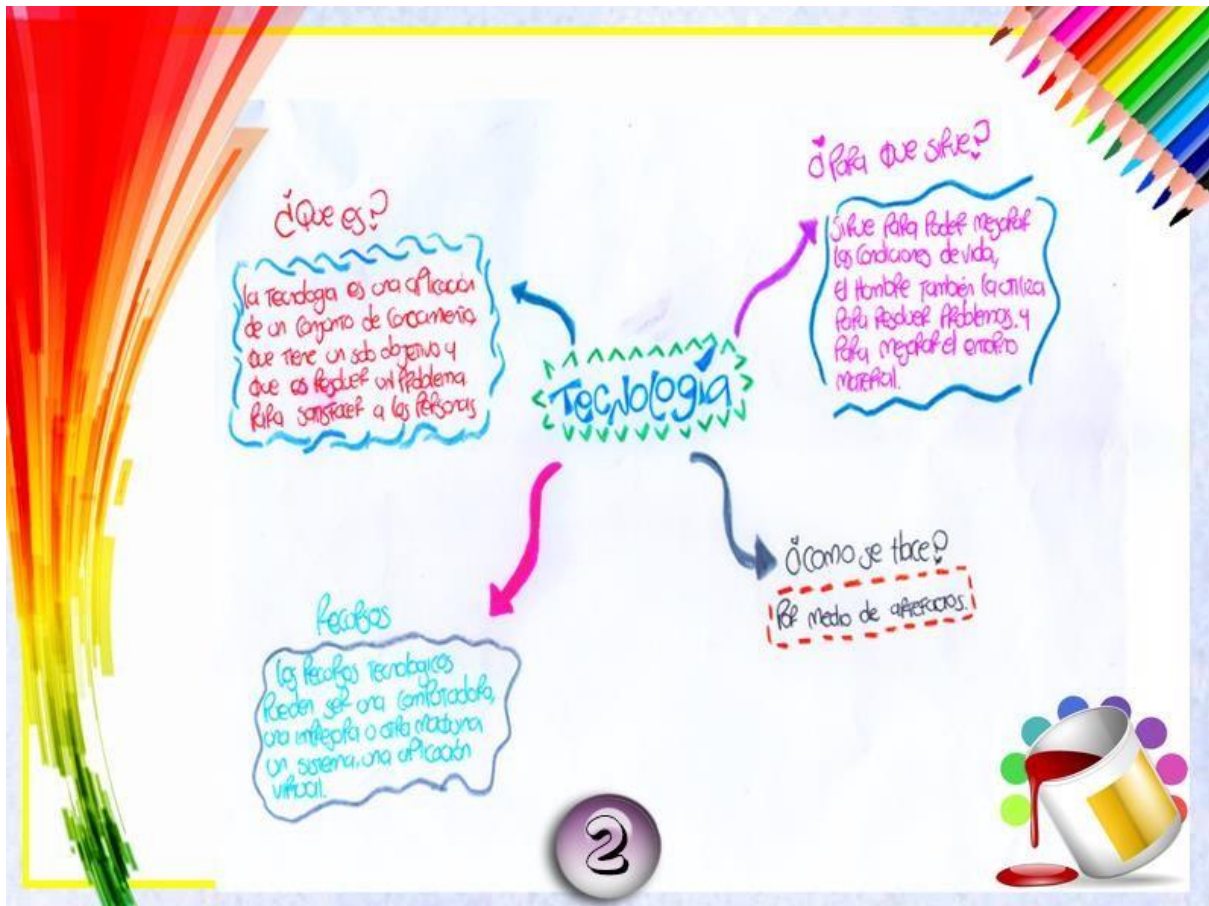 ¿Que es?
la Tecnologia es una aplicación
de un conjunto de conocimiento,
que tiene un solo objetivo y
que es Resolver un Problema
para satisfacer a las Personas
Tecnología
¿Para que sirve?
Sirve para Poder mejorar
las condiciones de vida,
el Hombre también la utiliza
para Resolver Problemas. y
para mejorar el entorno
material.
¿como se Hace?
Por medio de artefactos.
Recursos
los Recursos Tecnologicos
Pueden ser una computadora,
una impresora o otra maquina
un sistema, una aplicación
virtual.
2